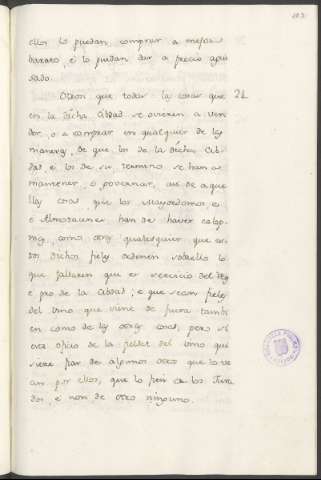 ellos lo puedan comprar a mejor
barato, e lo puedan dar a precio agui
sado.
Otrosi que todas las cosas que
en la dicha Cibdad se ovieren a ven
der, o a comprar en qualquier de las
maneras, de que los de la dicha Cib-
dad e los de su termino se han a
mantener, o governar, asi de aque
llas cosas que los Mayordomos e
e Almotacenes han de haver caloñas
como otras qualesquier que es-
tos dichos fieles ordenen sobrello lo
que fallaren que es servicio del Rey
e pro de la Cibdad; e que sean fieles
del vino que viene de fuera tambi
en como de las otras cosas, pero si
este oficio de la fieldat del vino que
viene fan de algunos otros que lo te
an por ellos, que lo fien de los Jura
dos, e non de otro ninguno.
21